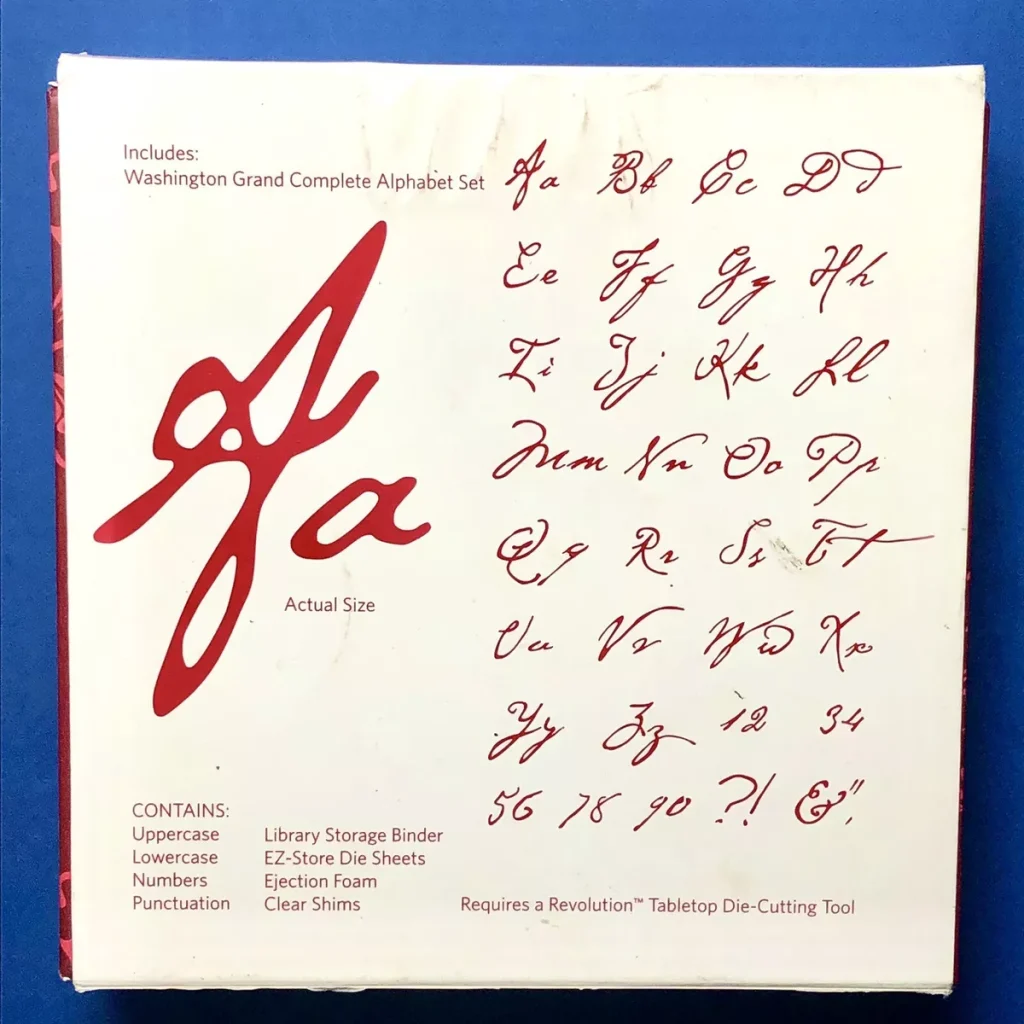 Includes:
Washington Grand Complete Alphabet Set
Aa Bb Cc Dd
Ee Ff Gg Hh
Ii Jj Kk Ll
Mm Nn Oo Pp
Qq Rr Ss Tt
Uu Vv Ww Xx
Yy Zz 12 34
56 78 90 ?! &",
Aa
Actual Size
CONTAINS:
Uppercase Library Storage Binder
Lowercase EZ-Store Die Sheets
Numbers Ejection Foam
Punctuation Clear Shims
Requires a Revolution™ Tabletop Die-Cutting Tool